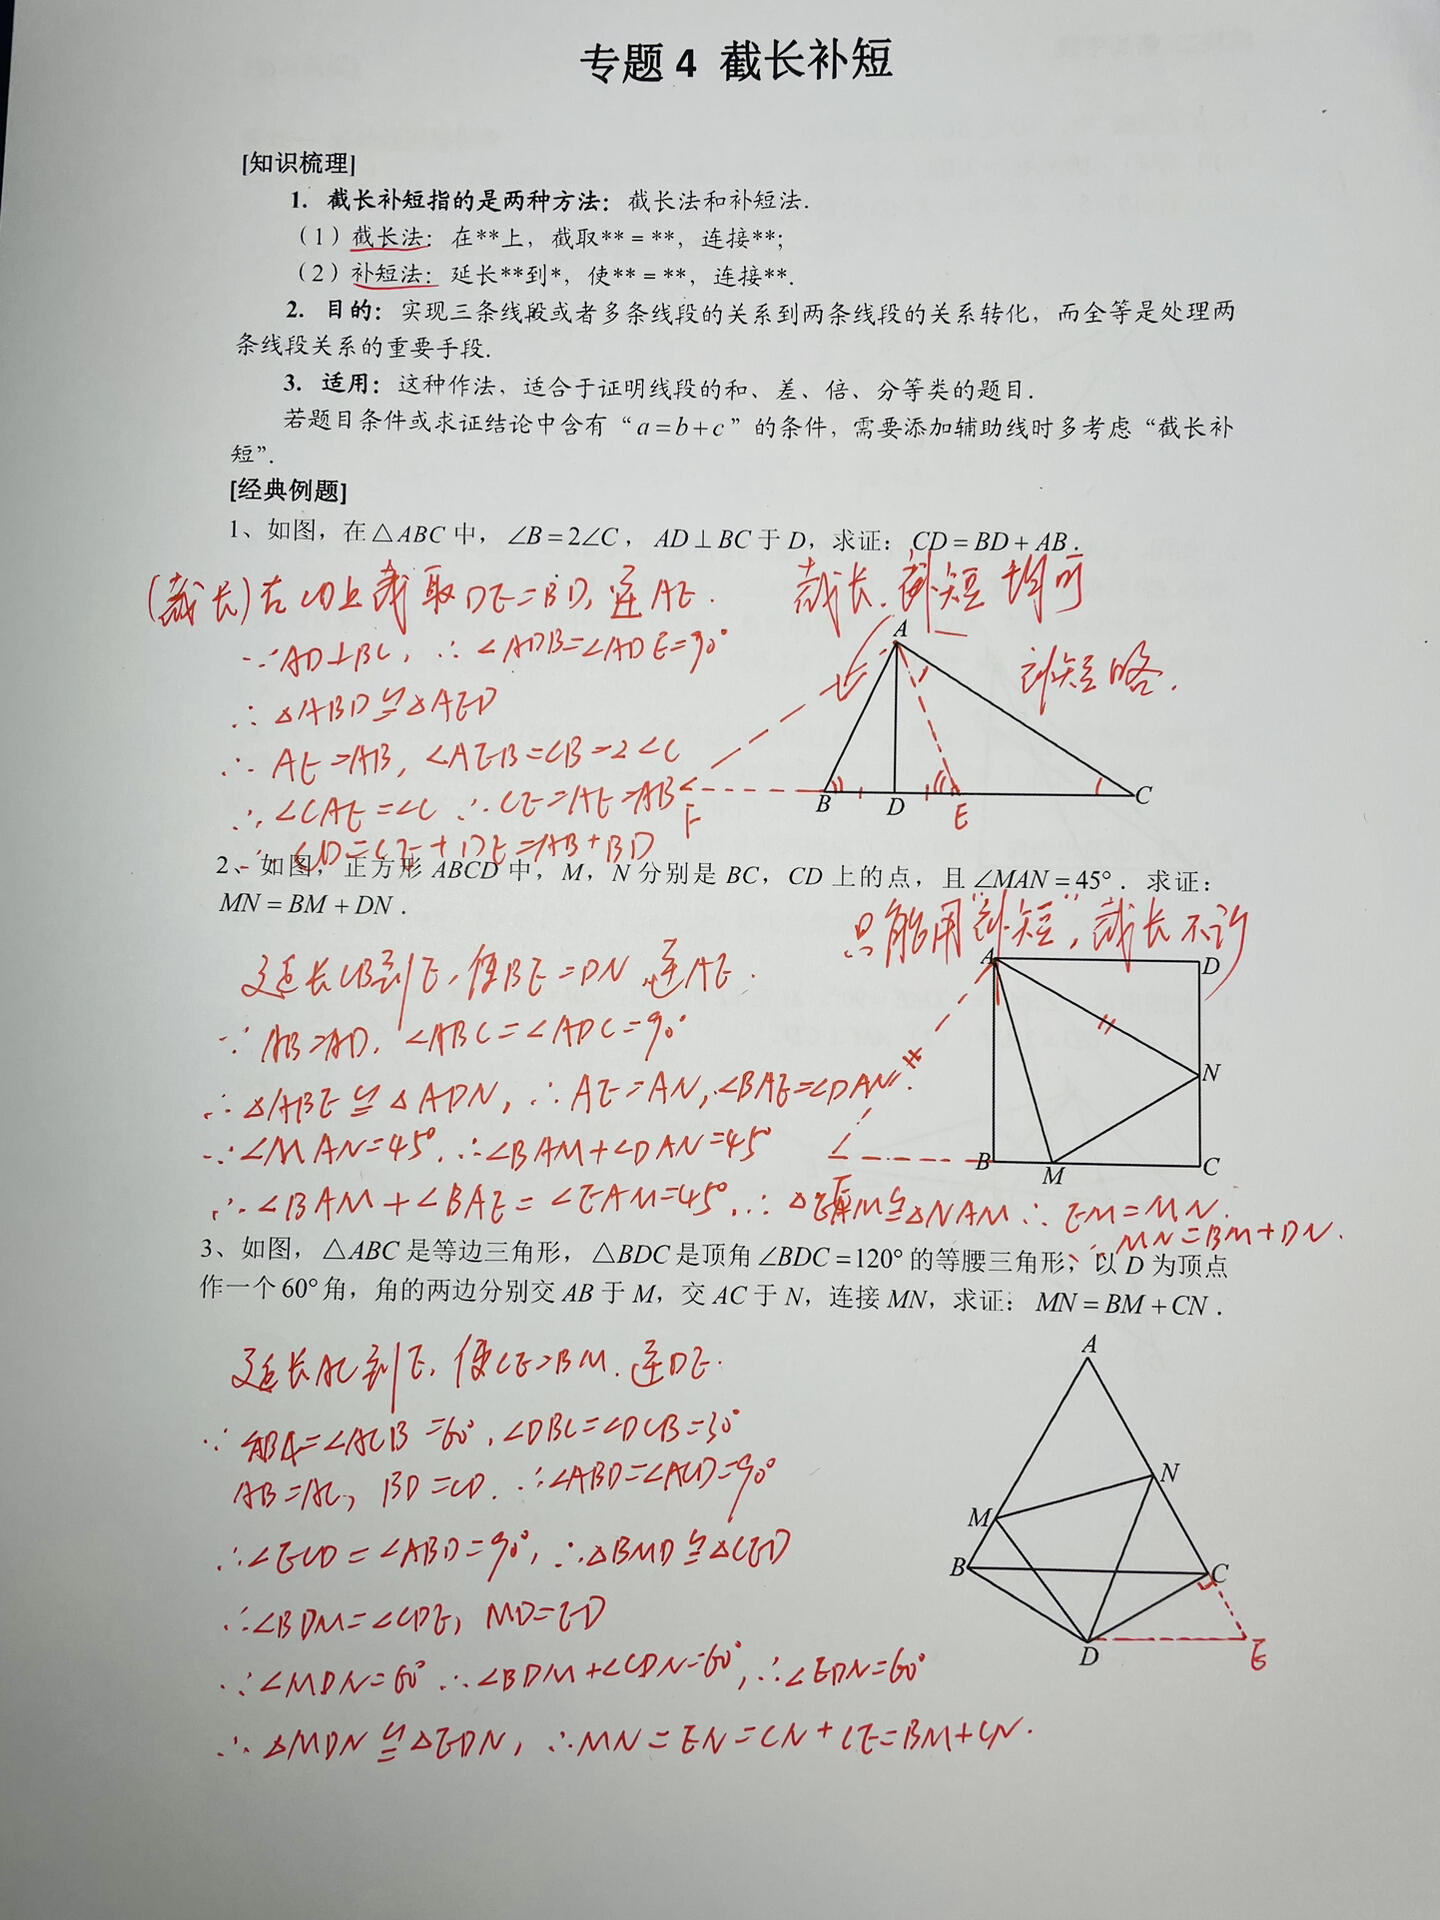 专题 4 截长补短
[知识梳理]
1. 截长补短指的是两种方法：截长法和补短法.
（1）截长法：在**上，截取** = **，连接**;
（2）补短法：延长**到*，使** = **，连接**.
2. 目的：实现三条线段或者多条线段的关系到两条线段的关系转化，而全等是处理两
条线段关系的重要手段.
3. 适用：这种作法，适合于证明线段的和、差、倍、分等类的题目.
若题目条件或求证结论中含有“a=b+c”的条件，需要添加辅助线时多考虑“截长补
短”.
[经典例题]
1、如图，在△ABC 中，∠B=2∠C，AD⊥BC 于 D，求证：CD=BD+AB.
(截长) 在CD上截取DE=BD, 连AE.
截长.补短均可
∵AD⊥BC, ∴∠ADB=∠ADE=90°
补短略.
∴△ABD≌△AED
∴AE=AB, ∠AEB=∠B=2∠C
∴∠CAE=∠C ∴CE=AE=AB
∴CD=CE+DE=AB+BD
A
B D E C
F
2、如图，正方形 ABCD 中，M，N 分别是 BC，CD 上的点，且 ∠MAN=45°．求证：
MN=BM+DN．
只能用“补短”, 截长不许
延长CB到E, 使BE=DN, 连AE.
∵AB=AD, ∠ABC=∠ADC=90°
∴△ABE≌△ADN, ∴AE=AN, ∠BAE=∠DAN.
∵∠MAN=45°, ∴∠BAM+∠DAN=45°
∴∠BAM+∠BAE=∠EAM=45°, ∴△EAM≌△NAM ∴EM=MN.
∴MN=BM+DN.
A D
N
B M C
E
3、如图，△ABC 是等边三角形，△BDC 是顶角∠BDC=120°的等腰三角形，以 D 为顶点
作一个60°角，角的两边分别交 AB 于 M，交 AC 于 N，连接 MN，求证：MN=BM+CN．
延长AC到E, 使CE=BM. 连DE.
∵∠ABC=∠ACB=60°, ∠DBC=∠DCB=30°
AB=AC, BD=CD. ∴∠ABD=∠ACD=90°
∴∠ECD=∠ABD=90°, ∴△BMD≌△CED
∴∠BDM=∠CDE, MD=ED
∵∠MDN=60° ∴∠BDM+∠CDN=60°, ∴∠EDN=60°
∴△MDN≌△EDN, ∴MN=EN=CN+CE=BM+CN.
A
N
M
B C
D E